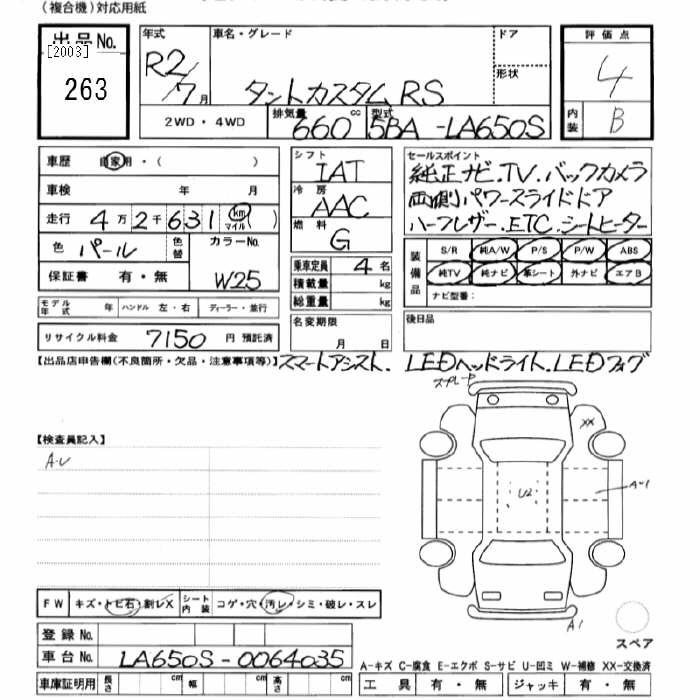 (複合機)対応用紙
出品No. 年式 車名・グレード ドア 評価点
[2003]
263 R2/7月 タントカスタム RS 形状 4
2WD・4WD 排気量 660cc 型式 5BA-LA650S 内装 B
車歴 自家用・( )
車検 年 月
走行 4万2千631 (km マイル)
色 パール 色替 カラーNo. W25
保証書 有・無
モデル年式 年 ハンドル 左・右 ディーラー・並行
リサイクル料金 7150 円 預託済
シフト IAT
冷房 AAC
燃料 G
乗車定員 4名
積載量 kg
総重量 kg
名変期限 月 日
セールスポイント
純正ナビ.TV.バックカメラ
両側パワースライドドア
ハーフレザー.ETC.シートヒーター
装備品 S/R 純A/W P/S P/W ABS
純TV 純ナビ 革シート 外ナビ エアB
ナビ型番:
後日品
【出品店申告欄(不良箇所・欠品・注意事項等)】スマートアシスト. LEDヘッドライト.LEDフォグ
スプレー
【検査員記入】
A・U
XX
U2
A-1
A1
スペア
FW キズ・トビ石・割レX シート内装 コゲ・穴・汚レ・シミ・破レ・スレ
登録No.
車台No. LA650S-0064035
A-キズ C-腐食 E-エクボ S-サビ U-凹ミ W-補修 XX-交換済
車庫証明用 長さ cm 幅 cm 高さ cm 工具 有・無 ジャッキ 有・無